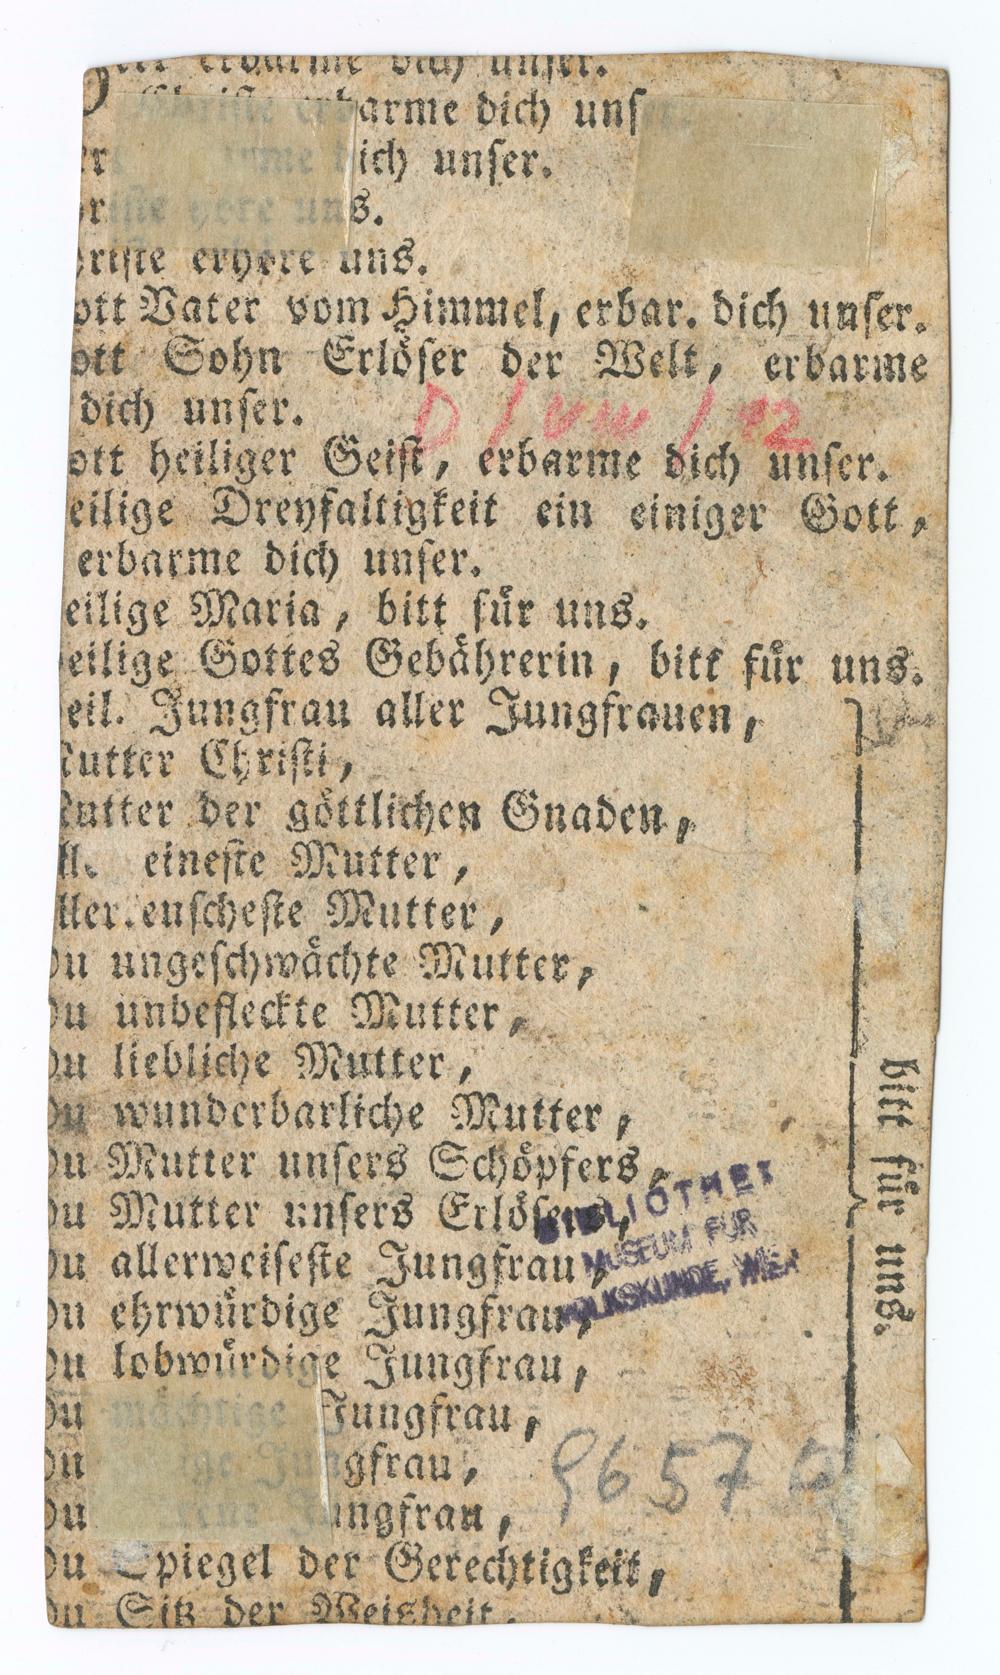 erbarme dich unser.
Christe erbarme dich unser.
dich unser.
riste höre uns.
riste erhöre uns.
ott Vater vom Himmel, erbar. dich unser.
ott Sohn Erlöser der Welt, erbarme
dich unser.
ott heiliger Geist, erbarme dich unser.
eilige Dreyfaltigkeit ein einiger Gott,
erbarme dich unser.
eilige Maria, bitt für uns.
eilige Gottes Gebährerin, bitt für uns.
eil. Jungfrau aller Jungfrauen,
utter Christi,
utter der göttlichen Gnaden,
ll. eineste Mutter,
ller.euscheste Mutter,
Du ungeschwächte Mutter,
Du unbefleckte Mutter,
Du liebliche Mutter,
Du wunderbarliche Mutter,
Du Mutter unsers Schöpfers,
Du Mutter unsers Erlösers,
Du allerweiseste Jungfrau,
Du ehrwürdige Jungfrau,
Du lobwürdige Jungfrau,
Du mächtige Jungfrau,
Du ige Jungfrau,
Du reue Jungfrau,
Du Spiegel der Gerechtigkeit,
Du Sitz der Weisheit,
bitt für uns.
BIBLIOTHEK
MUSEUM FÜR
VOLKSKUNDE, WIEN
9657